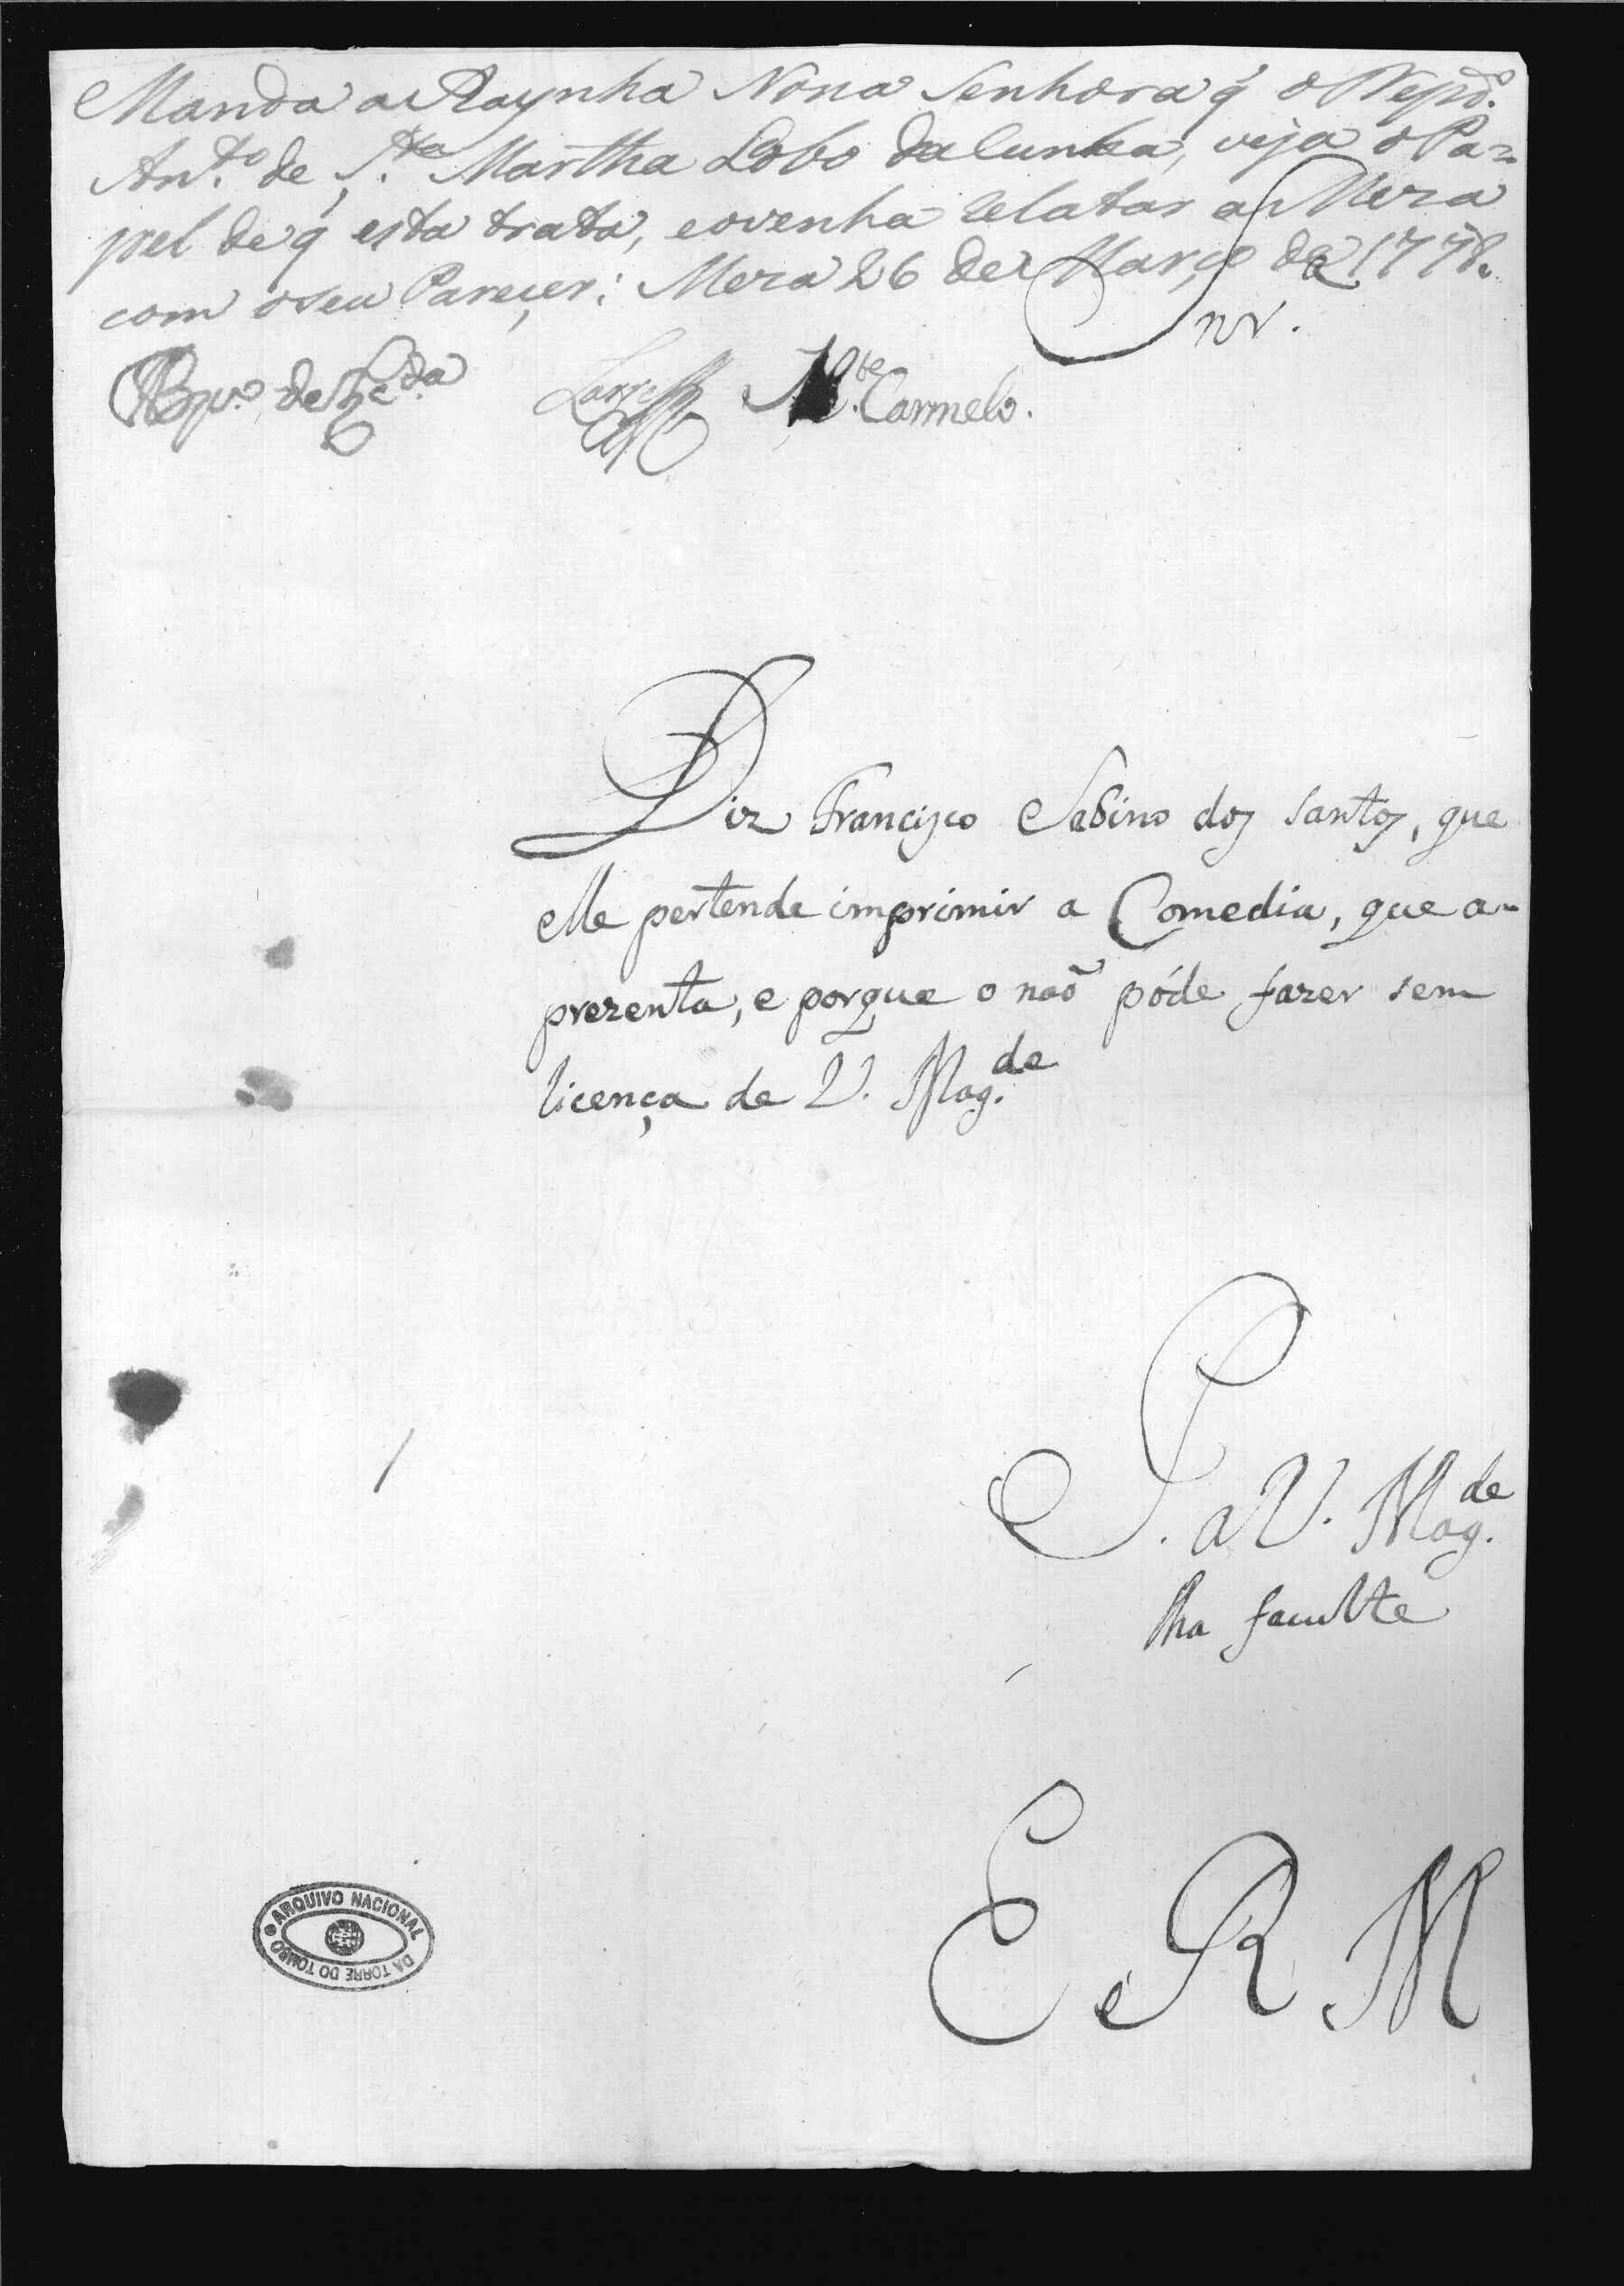 Manda a Raynha Nossa Senhora q̃ o Depd.º
Ant.º de S.ta Martha Lobo da Cunha, veja o Pa=
pel de q̃ esta trata, e o venha relatar a Meza
com o seu Pareçer: Meza 26 de Março de 1778.
Snr.
Bpo. de M.te Carmelo.
Diz Francisco Sabino dos Santos, que
elle pertende imprimir a Comedia, que a-
prezenta, e porque o naõ póde fazer sem
licença de V. Mag.de
P. a V. Mag.de
lha faculte
E. R. M
ARQUIVO NACIONAL
DA TORRE DO TOMBO